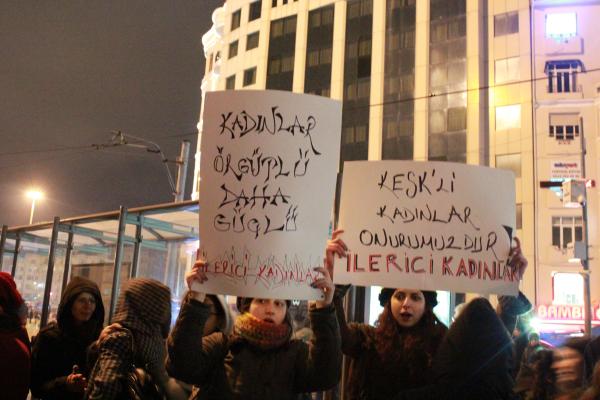 KADINLAR
ÖRGÜTLÜ
DAHA
GÜÇLÜ
İLERİCİ KADINLAR
KESK'Lİ
KADINLAR
ONURUMUZDUR
İLERİCİ KADINLAR
BAMBİ